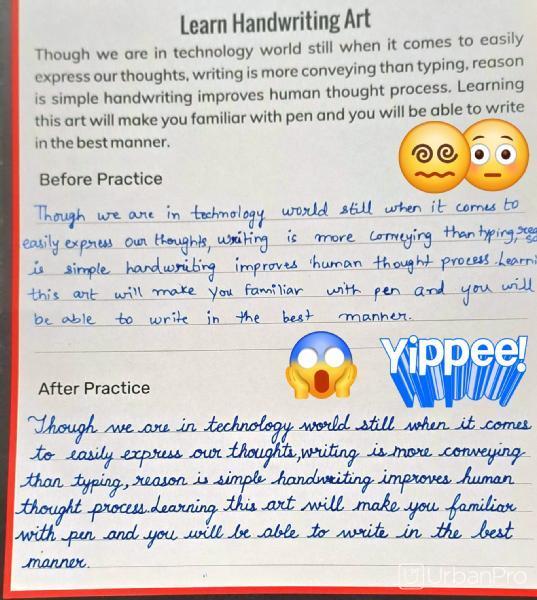 Learn Handwriting Art
Though we are in technology world still when it comes to easily
express our thoughts, writing is more conveying than typing, reason
is simple handwriting improves human thought process. Learning
this art will make you familiar with pen and you will be able to write
in the best manner.
Before Practice
Though we are in technology world still when it comes to
easily express our thoughts, writing is more conveying than typing,
is simple handwriting improves human thought process. Learni
this art will make you familiar with pen and you will
be able to write in the best manner.
Yippee!
After Practice
Though we are in technology world still when it comes
to easily express our thoughts, writing is more conveying
than typing, reason is simple handwriting improves human
thought process. Learning this art will make you familiar
with pen and you will be able to write in the best
manner.
UrbanPro